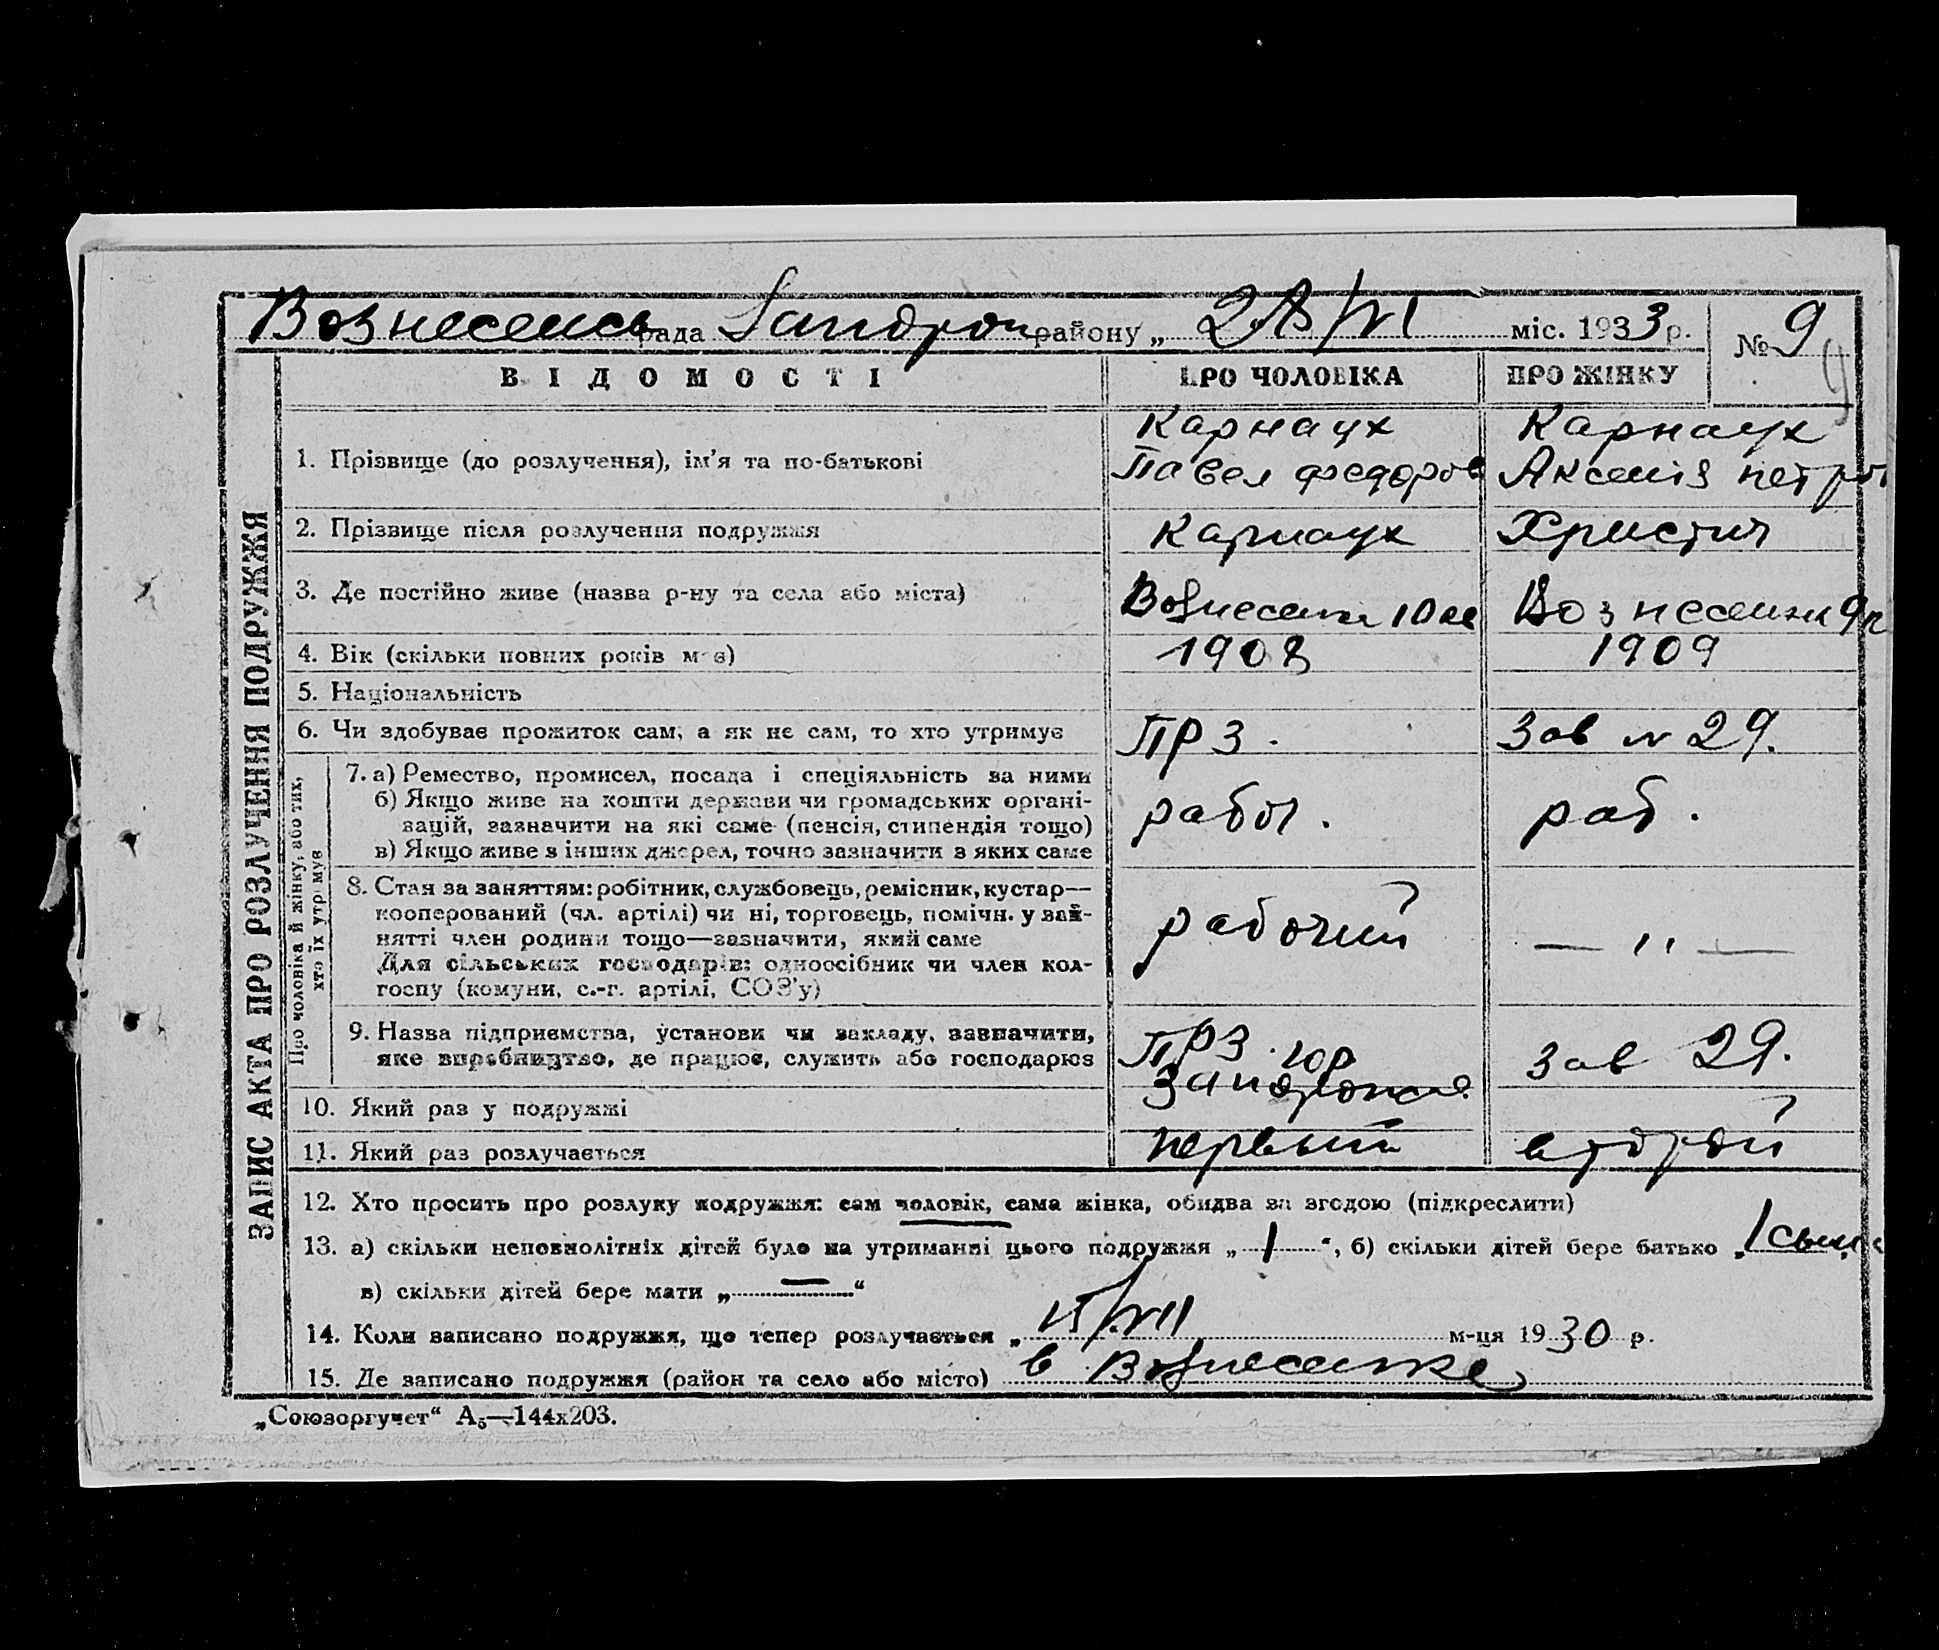 Вознесенсь рада Запорож району „ 28/VI міс. 1933 р. № 9
ВІДОМОСТІ ПРО ЧОЛОВІКА ПРО ЖІНКУ
ЗАПИС АКТА ПРО РОЗЛУЧЕННЯ ПОДРУЖЖЯ
1. Прізвище (до розлучення), ім’я та по-батькові Карнаух Карнаух
Павел Федоров Аксенія петро
2. Прізвище після розлучення подружжя Карнаух
3. Де постійно живе (назва р-ну та села або міста) Вознесенка 10 Вознесенка 9
4. Вік (скільки повних років має) 1908 1909
5. Національність
6. Чи здобуває прожиток сам, а як не сам, то хто утримує ПРЗ. Зав № 29.
Про чоловіка й жінку, або тих, хто їх утримує
7. а) Ремество, промисел, посада і спеціяльність за ними
б) Якщо живе на кошти держави чи громадських органі-
зацій, зазначити на які саме (пенсія, стипендія тощо) рабоч. раб.
в) Якщо живе з інших джерел, точно зазначити з яких саме
8. Стан за заняттям: робітник, службовець, ремісник, кустар—
кооперований (чл. артілі) чи ні, торговець, помічн. у зай-
нятті член родини тощо—зазначити, який саме рабочий — " —
Для сільських господарів: одноосібник чи член кол-
госпу (комуни, с.-г. артілі, СОЗ’у)
9. Назва підприємства, установи чи закладу, зазначити, ПРЗ
яке виробництво, де працює, служить або господарює зав 29.
10. Який раз у подружжі
11. Який раз розлучається первый второй
12. Хто просить про розлуку подружжя: сам чоловік, сама жінка, обидва за згодою (підкреслити)
13. а) скільки неповнолітніх дітей було на утриманні цього подружжя „ 1 “, б) скільки дітей бере батько „ 1 сына
в) скільки дітей бере мати „ — “
14. Коли записано подружжя, що тепер розлучається „ 15/VII м-ця 1930 р.
15. Де записано подружжя (район та село або місто) в Вознесенке
„Союзоргучет“ А₅—144х203.